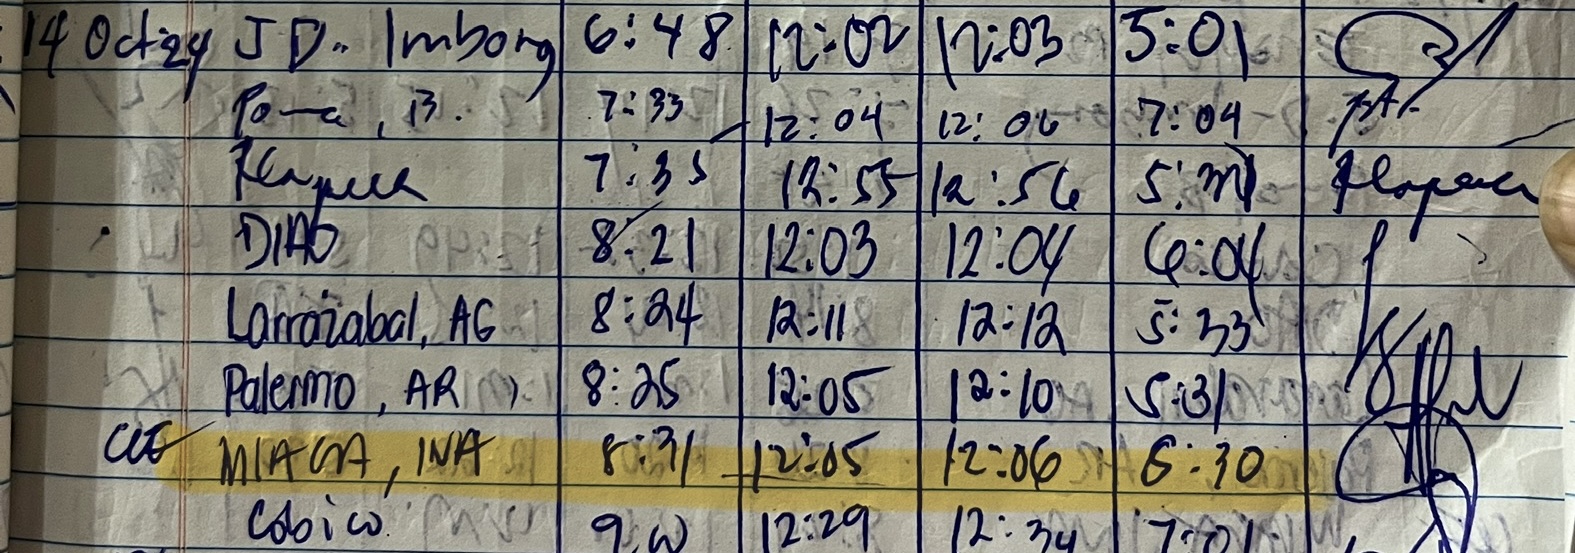 14 Oct 24 J D. Imborg 6:48 12:02 12:03 5:01
B. 7:33 12:04 12:06 7:04
7:35 12:55 12:56
DIAO 8:21 12:03 12:04 6:04
Larrazabal, AG 8:24 12:11 12:12 5:33
Palermo, AR 8:25 12:05 12:10 5:31
MIAGA, INA 8:31 12:05 12:06 6:30
Cobico 12:29 12:34 7:01